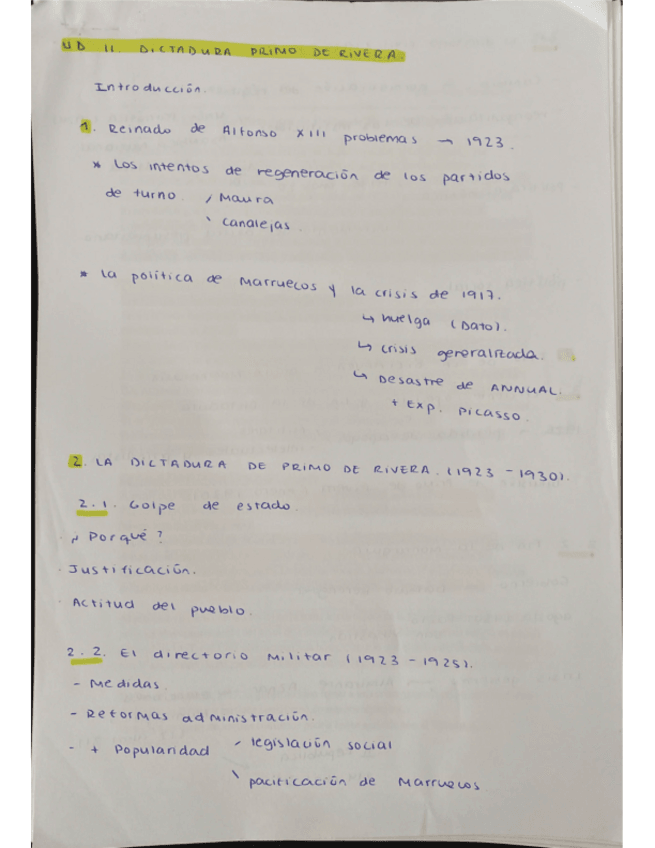 UD 11. DICTADURA PRIMO DE RIVERA.
Introducción.
1. Reinado de Alfonso XIII problemas → 1923.
* Los intentos de regeneración de los partidos
de turno. / Maura
\ Canalejas.
* La política de Marruecos y la crisis de 1917.
↳ huelga (Dato).
↳ crisis generalizada.
↳ Desastre de ANNUAL.
+ Exp. Picasso.
2. LA DICTADURA DE PRIMO DE RIVERA. (1923 - 1930).
2.1. Golpe de estado.
¿Por qué?
· Justificación.
· Actitud del pueblo.
2.2. El directorio Militar (1923 - 1925).
- Medidas.
- Reformas administración.
- + Popularidad / legislación social
\ pacificación de Marruecos